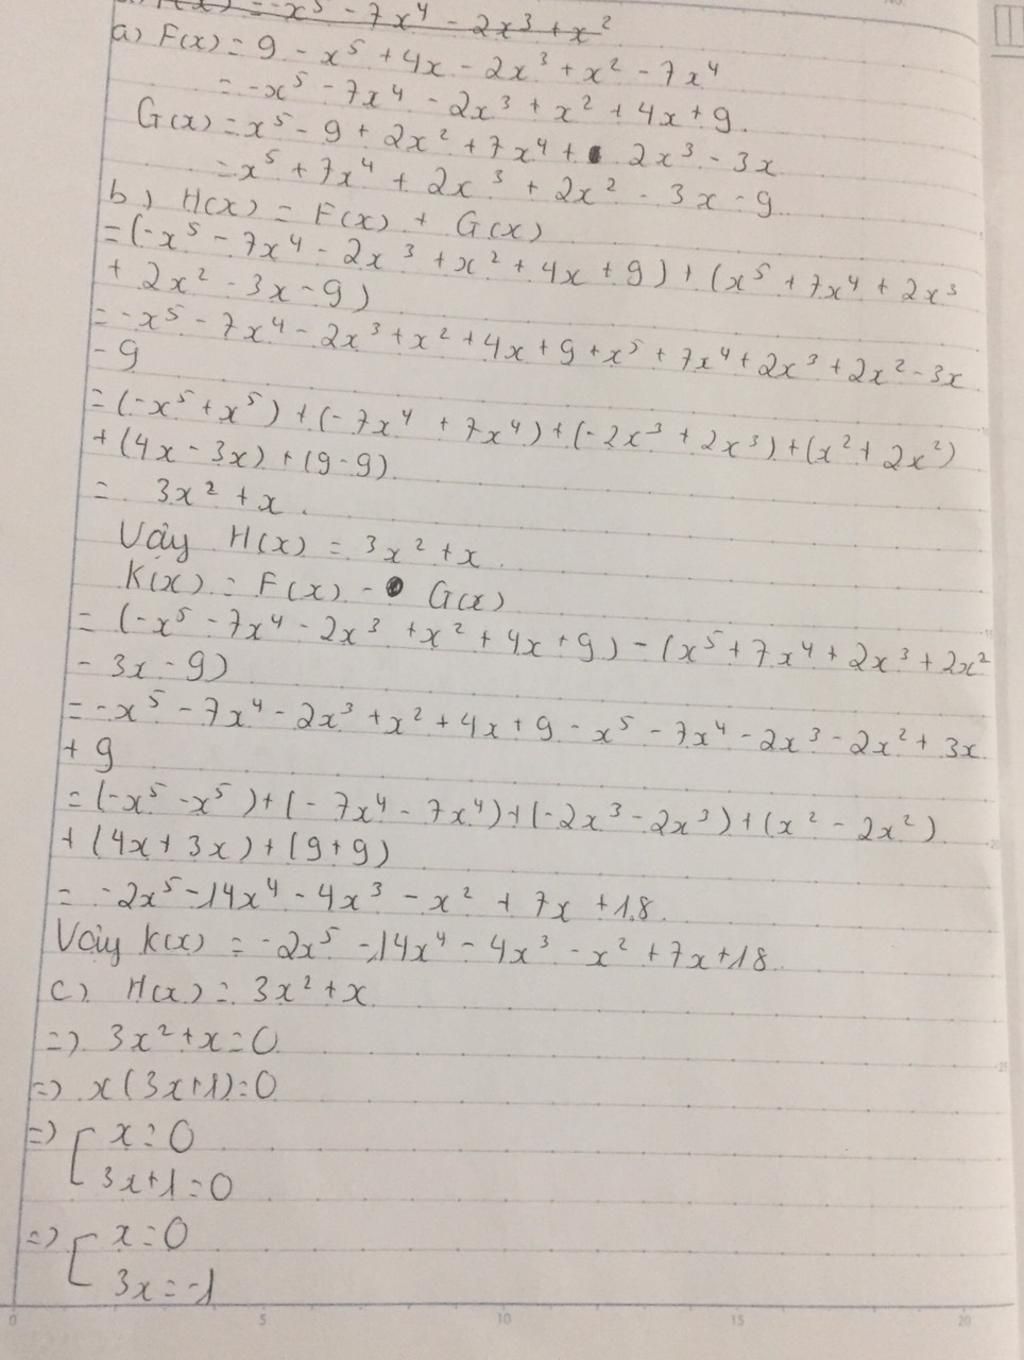 F(x) = -x⁵ - 7x⁴ - 2x³ + x²
a) F(x) = 9 - x⁵ + 4x - 2x³ + x² - 7x⁴
= -x⁵ - 7x⁴ - 2x³ + x² + 4x + 9.
G(x) = x⁵ - 9 + 2x² + 7x⁴ + 2x³ - 3x
= x⁵ + 7x⁴ + 2x³ + 2x² - 3x - 9
b) H(x) = F(x) + G(x)
= (-x⁵ - 7x⁴ - 2x³ + x² + 4x + 9) + (x⁵ + 7x⁴ + 2x³
+ 2x² - 3x - 9)
= -x⁵ - 7x⁴ - 2x³ + x² + 4x + 9 + x⁵ + 7x⁴ + 2x³ + 2x² - 3x
- 9
= (-x⁵ + x⁵) + (-7x⁴ + 7x⁴) + (-2x³ + 2x³) + (x² + 2x²)
+ (4x - 3x) + (9 - 9)
= 3x² + x.
Vậy H(x) = 3x² + x
K(x) = F(x) - G(x)
= (-x⁵ - 7x⁴ - 2x³ + x² + 4x + 9) - (x⁵ + 7x⁴ + 2x³ + 2x²
- 3x - 9)
= -x⁵ - 7x⁴ - 2x³ + x² + 4x + 9 - x⁵ - 7x⁴ - 2x³ - 2x² + 3x
+ 9
= (-x⁵ - x⁵) + (-7x⁴ - 7x⁴) + (-2x³ - 2x³) + (x² - 2x²)
+ (4x + 3x) + (9 + 9)
= -2x⁵ - 14x⁴ - 4x³ - x² + 7x + 18
Vậy K(x) = -2x⁵ - 14x⁴ - 4x³ - x² + 7x + 18
c) H(x) = 3x² + x
=> 3x² + x = 0
=> x(3x+1) = 0
=> [ x = 0
3x+1 = 0
=> [ x = 0
3x = -1
0 5 10 15 20